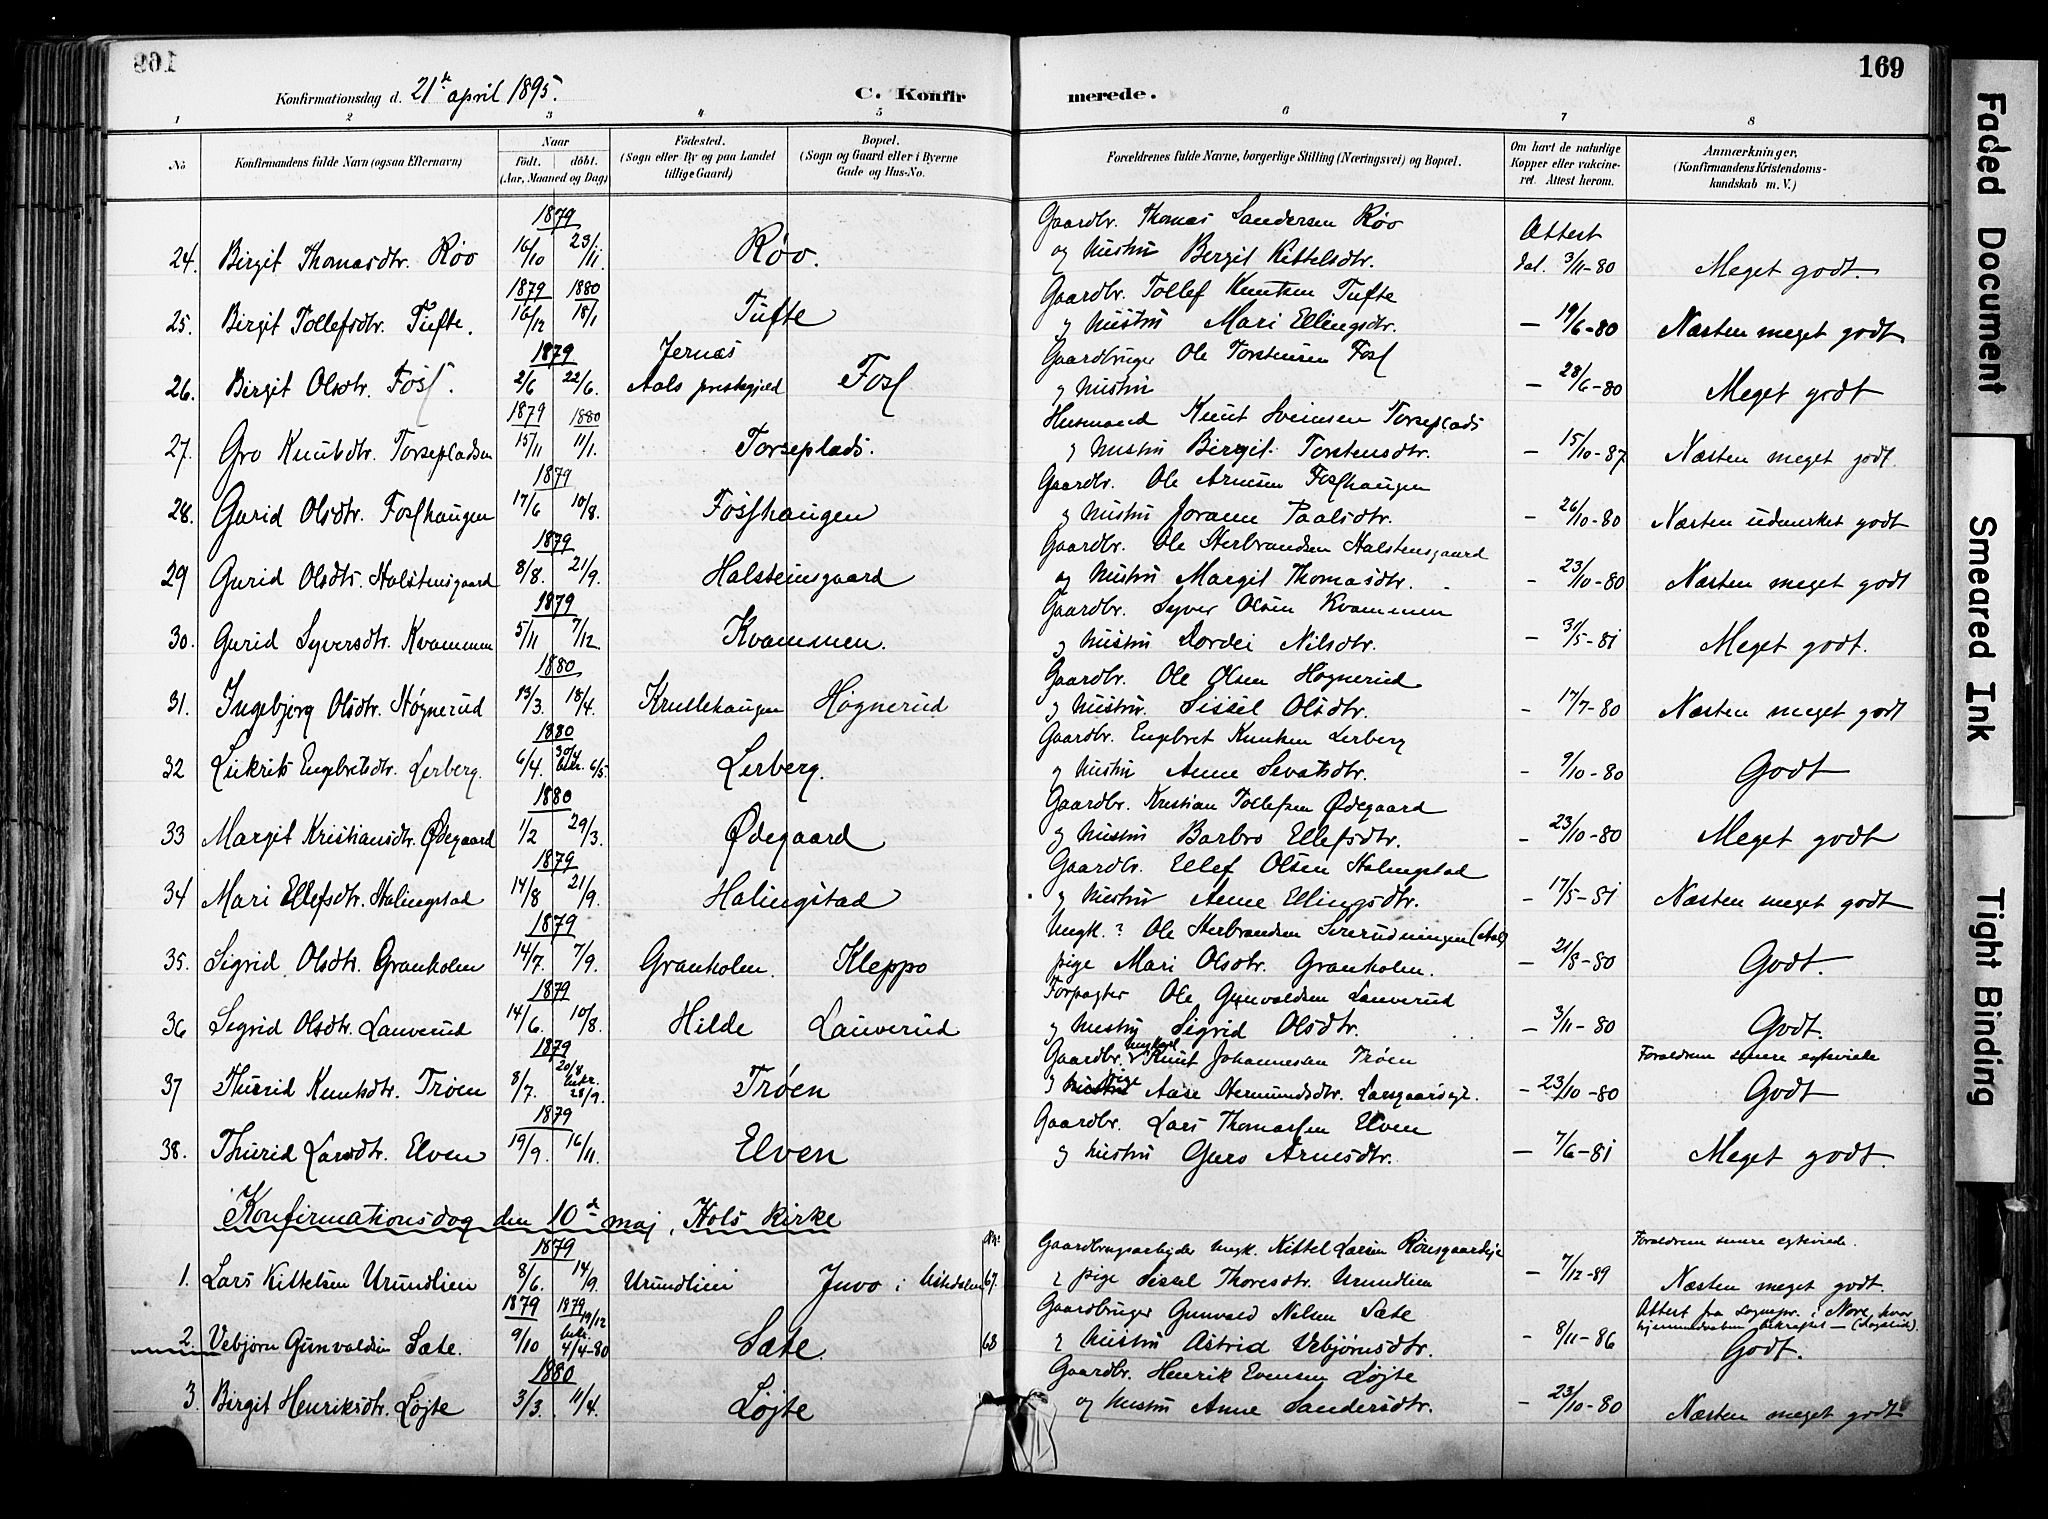 169
Konfirmationsdag d. 21de april 1895.
C. Konfirmerede.
1 2 3 4 5 6 7 8
No
Konfirmandens fulde Navn (ogsaa Efternavn)
Naar født. døbt. (Aar, Maaned og Dag)
Födested. (Sogn eller By og paa Landet tillige Gaard)
Bopæl. (Sogn og Gaard eller i Byerne Gade og Hus-No.
Forældrenes fulde Navne, borgerlige Stilling (Næringsvei) og Bopæl.
Om havt de naturlige Kopper eller vakcineret. Attest herom.
Anmærkninger, (Konfirmandens Kristendomskundskab m. V.)
1879 Gaardbr. Thomas Sandersen Røo Attest
24. Birgit Thomasdtr. Røo 16/10 23/11 Røo. og Hustru Birgit Kittelsdtr. dat. 3/11-80 Meget godt.
1879 1880 Gaardbr. Tollef Knutsen Tufte
25. Birgit Tollefsdtr. Tufte. 16/12 18/1 Tufte og Hustru Mari Ellingsdtr. — 19/6-80 Næsten meget godt
1879 Jernæs Gaardbruger Ole Torstensen Fosl
26. Birgit Olsdtr. Fosl. 2/6 22/6. Aals prestegjæld Fosl og Hustru — 28/6-80 Meget godt
1879 1880 Husmand Knut Svensen Torseplads
27. Gro Knutsdtr. Torsepladsen 15/11 11/1. Torseplads. og Hustru Birgit Torstensdtr. — 15/10-87 Næsten meget godt.
1879 Gaardbr. Ole Arnesen Foslhaugen
28. Gurid Olsdtr. Foslhaugen 17/6 10/8. Foslhaugen og Hustru Joranne Paalsdtr. — 26/10-80 Næsten udmerket godt
1879 Gaardbr. Ole Herbrandsen Halstensgaard
29 Gurid Olsdtr. Halstensgaard 8/8. 21/9. Halsteinsgaard og Hustru Margit Thomasdtr. - 23/10-80 Næsten meget godt
1879 Gaardbr. Syver Olsen Kvammen
30. Gurid Syversdtr. Kvammen 5/11 7/12. Kvammen. og Hustru Dordei Nilsdtr. — 31/5-81 Meget godt.
1880 Gaardbr. Ole Olsen Høgnerud
31. Ingebjørg Olsdtr. Høgnerud 13/3. 18/4. Krullehaugen Høgnerud og Hustru. Sissel Olsdtr. - 17/7-80 Næsten meget godt
1880 Gaardbr. Engebret Knutsen Lerberg
32 Engebretsdtr. Lerberg. 6/4. 30/4 bekr. 6/5. Lerberg. og Hustru Anne Sevatsdtr. - 9/10-80 Godt
1880 Gaardbr. Kristian Tollefsen Ødegaard
33 Margit Kristiansdtr. Ødegaard 1/2 29/3. Ødegaard og Hustru Barbro Ellefsdtr. - 23/10-80 Meget godt
1879 Gaardbr. Ellef Olsen Halingstad
34 Mari Ellefsdtr. Halingstad 14/8 21/9. Halingstad og Hustru Anne Ellingsdtr. - 17/5-81 Næsten meget godt
1879 Ungk. ? Ole Herbrandsen (Aal)
35. Sigrid Olsdtr. Granholm 14/7. 7/9. Granholm. Kleppo pige Mari Olsdtr. Granholm. — 21/8-80 Godt.
1879 Forpagter Ole Gunvaldsen Lauverud
36 Sigrid Olsdtr. Lauverud 14/6. 10/8. Hilde Lauverud og Hustru Sigrid Olsdtr. — 3/11-80 Godt.
1879 20/8 Gaardbr. ungkarl Knut Johannessen Trøen Forældrene senere egteviede
37 Thurid Knutsdtr. Trøen 8/7. bekr. 28/9. Trøen og pige Aase Hermundsdtr. — 23/10-80 Godt
1879 Gaardbr. Lars Thomassen Elven
38. Thurid Larsdtr. Elven 19/9. 16/11. Elven og Hustru Guro Arnesdtr. — 7/6-81 Meget godt.
Konfirmationsdag den 10de maj, Hols kirke
1879 No: Gaardbrugsarbejder ungk. Kittel Larsen Forældrene senere egteviede.
1. Lars Kittelsen Urundlien 8/6. 14/9. Urundlien Juvo i 67. og pige Sissel Thoresdtr. Urundlien — 7/12-89 Næsten meget godt.
1879 1879 19/12 Gaardbruger Gunvald Nilsen Sæte Attest fra sognepr. i Nore, hvor
2. Vebjørn Gunvaldsen Sæte. 9/10 bekr. 4/4-80 Sæte. 68 og Hustru Astrid Vebjørnsdtr. - 8/11-86 Godt.
1880 Gaardbr. Henrik Evensen Løjte
3. Birgit Henriksdtr. Løjte 3/3. 11/4. Løjte og Hustru Anne Sandersdtr. - 23/10-80 Næsten meget godt
Faded Document
Smeared Ink
Tight Binding